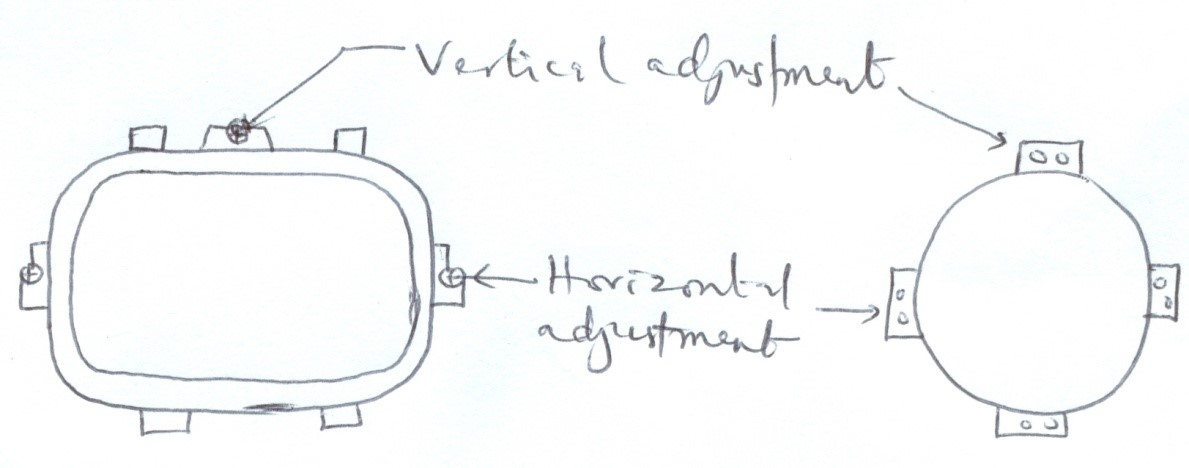 Vertical adjustment
Horizontal
adjustment